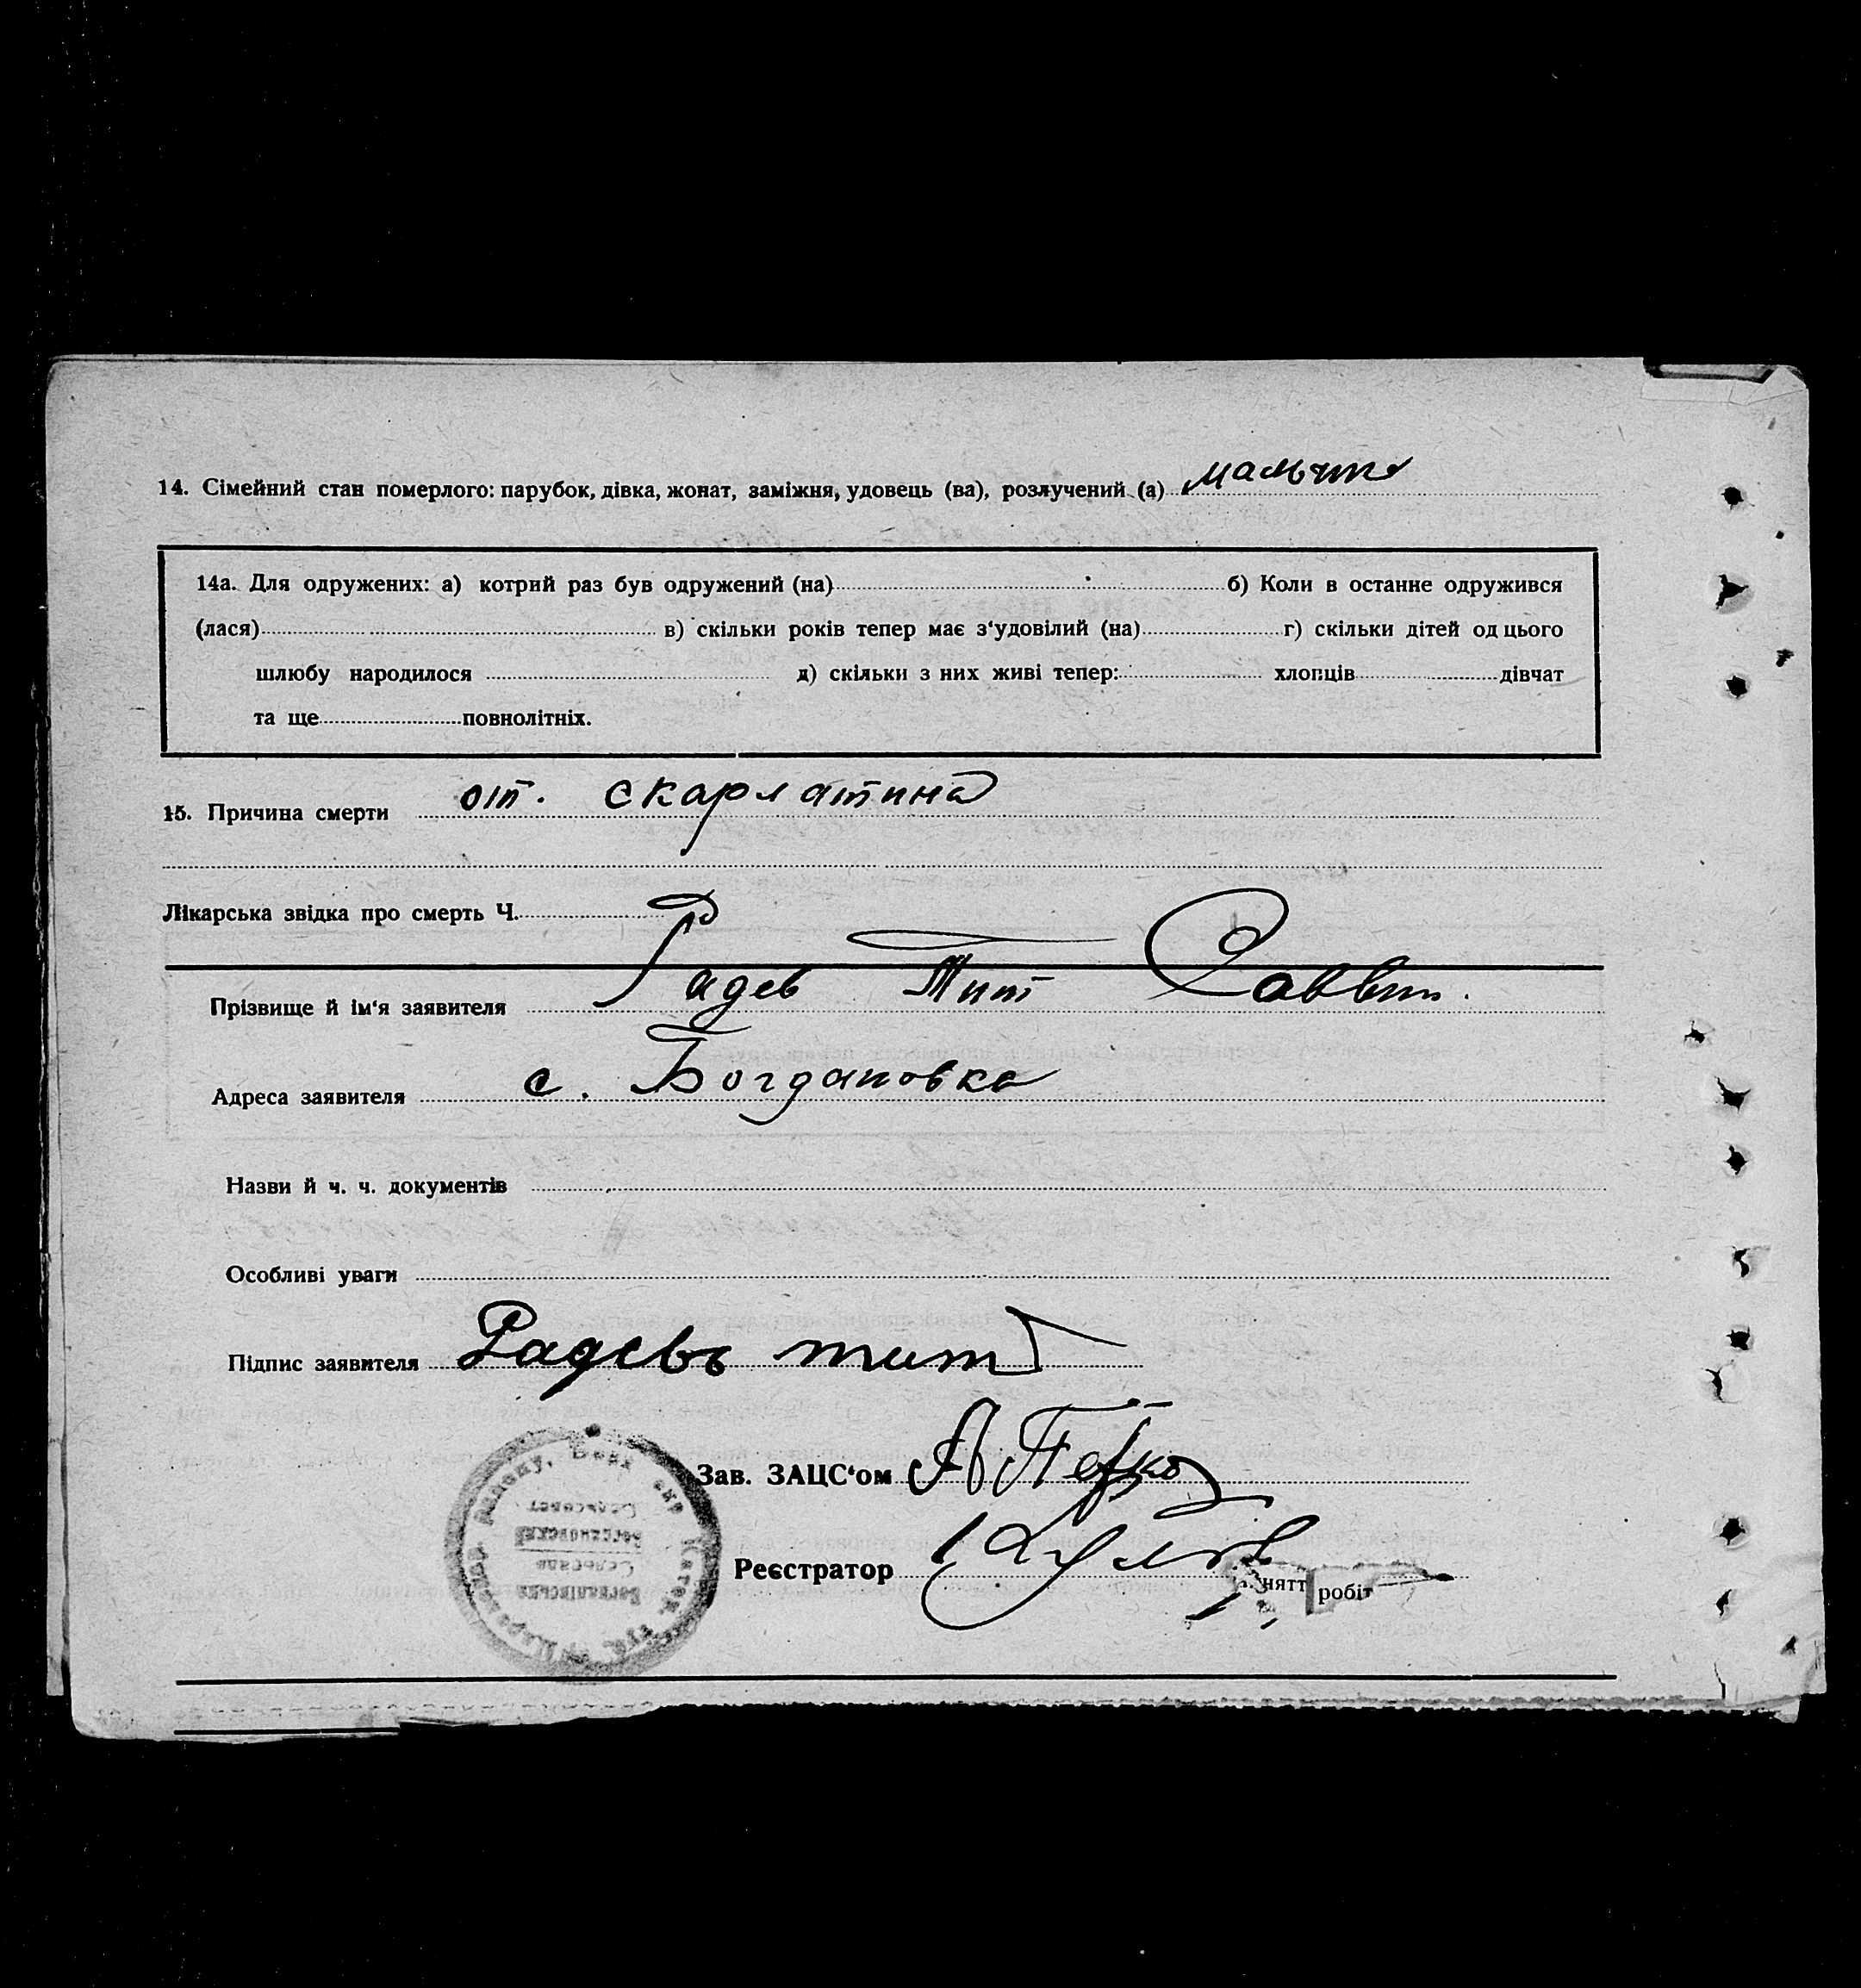 14. Сімейний стан померлого: парубок, дівка, жонат, заміжня, удовець (ва), розлучений (а)
14а. Для одружених: а) котрий раз був одружений (на) б) Коли в останнє одружився
(лася) в) скільки років тепер має з‘удовілий (на) г) скільки дітей од цього
шлюбу народилося д) скільки з них живі тепер: хлопців дівчат
та ще повнолітніх.
15. Причина смерти от. скарлатина
Лікарська звідка про смерть Ч.
Прізвище й ім‘я заявителя Радев Тит Саввит.
Адреса заявителя с. Богдановка
Назви й ч. ч. документів
Особливі уваги
Підпис заявителя Радевъ тит
Зав. ЗАЦС‘ом
Реєстратор
нятт робіт